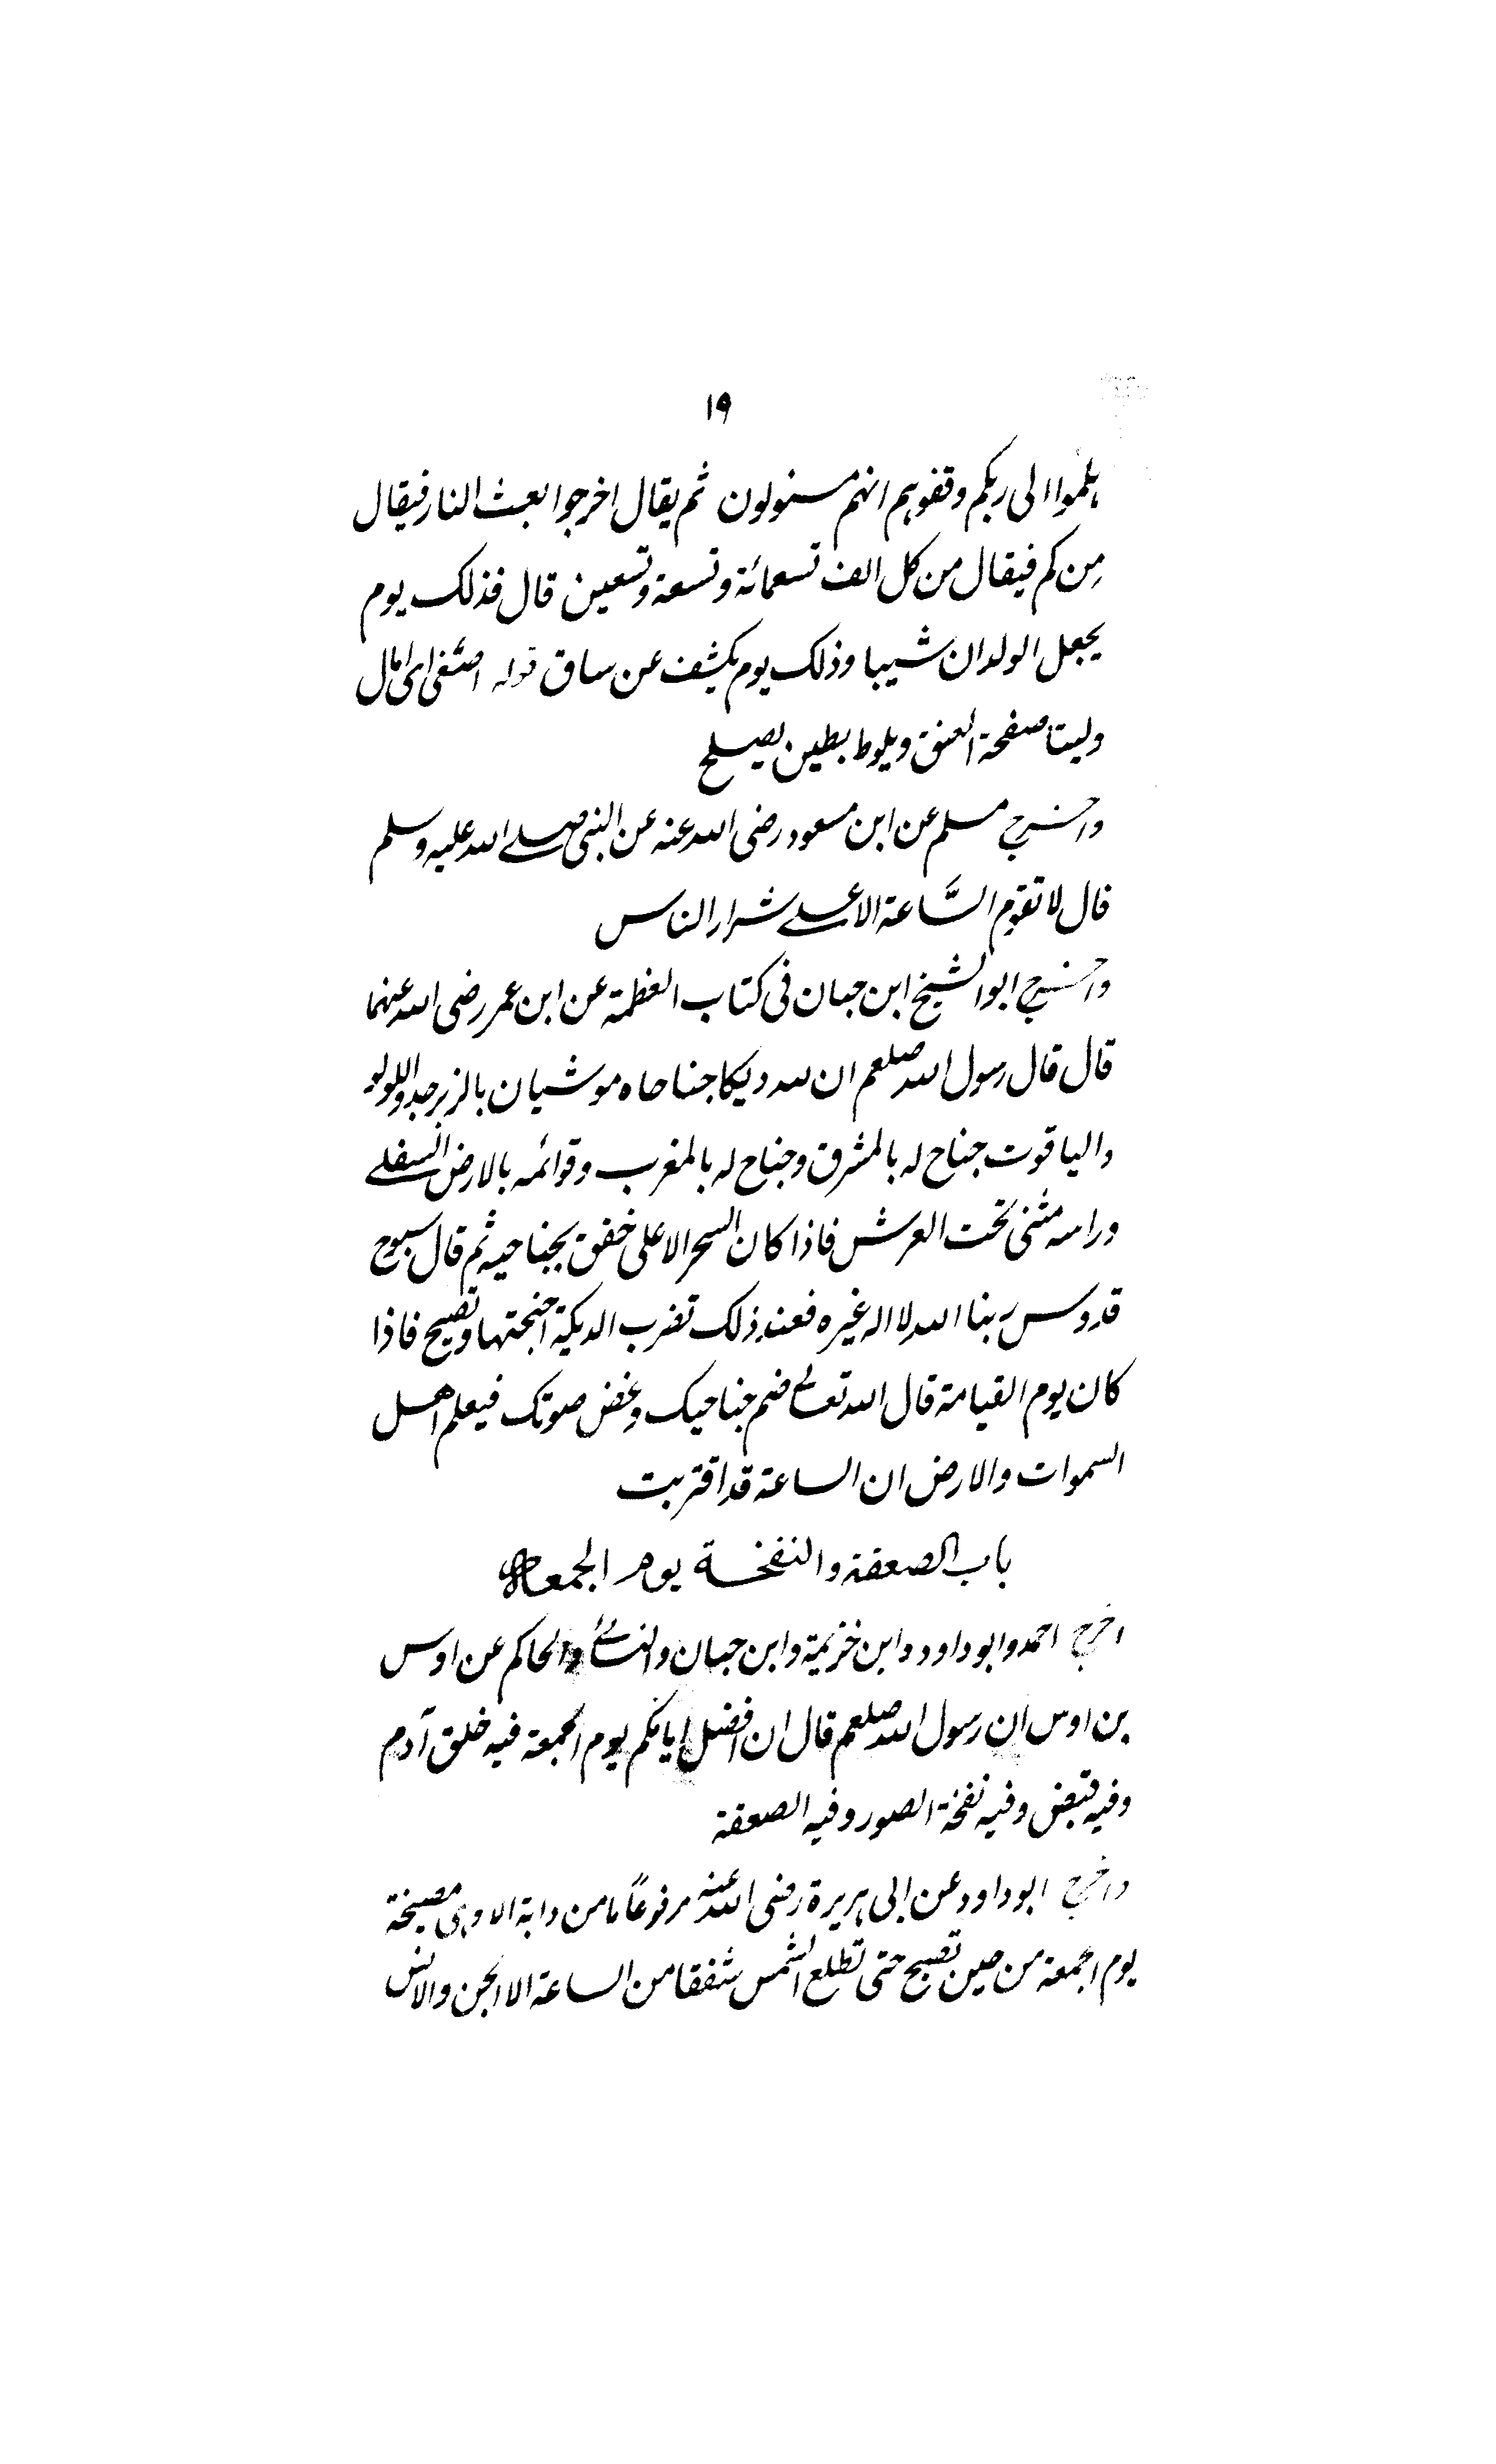 ١٩
ہلموا الی ربکم وقفوہم انہم مسئولون ثم یقال اخرجوا بعث النار فیقال
مِن کم فیقال من کل الف تسعمائة وتسعة وتسعین قال فذلک یوم
یجعل الولدان شیبا وذلک یوم یکشف عن ساق قولہ اصغی ای امال
ولیتا صفحة العنق ویلوط بطین یصلح
واخرج مسلم عن ابن مسعود رضی اللہ عنہ عن النبی صلے اللہ علیہ وسلم
قال لا تقوم السَّاعة الا علے شرار الناس
واخرج ابو الشیخ ابن حبان فی کتاب العظمة عن ابن عمر رضی اللہ عنہما
قال قال رسول اللہ صلعم ان للہ دیکا جناحاہ موشیان بالزبرجد واللولو
والیاقوت جناح لہ بالمشرق وجناح لہ بالمغرب وقوائمہ بالارض السفلے
وراسہ مثنی تحت العرش فاذا کان السحر الاعلی خفق بجناحیہ ثم قال سبوح
قدوس ربنا اللہ لا الہ غیرہ فعند ذلک تضرب الدیکة اجنحتہا وتصیح فاذا
کان یوم القیامة قال اللہ تعالے ضم جناحیک وغض صوتک فیعلم اھل
السموات والارض ان الساعة قد اقتربت
باب الصعقة والنفخة یوم الجمعة
اخرج احمد وابو داود وابن خزیمة وابن حبان والنسائے والحاکم عن اوس
بن اوس ان رسول اللہ صلعم قال ان افضل ایامکم یوم الجمعة فیہ خلق آدم
وفیہ قبض وفیہ نفخة الصور وفیہ الصعقة
واخرج ابو داود عن ابی ہریرة رضی اللہ عنہ مرفوعاً ما من دابة الا وہی مصیخة
یوم الجمعة من حین تصبح حتی تطلع الشمس شفقا من الساعة الا الجن والانس